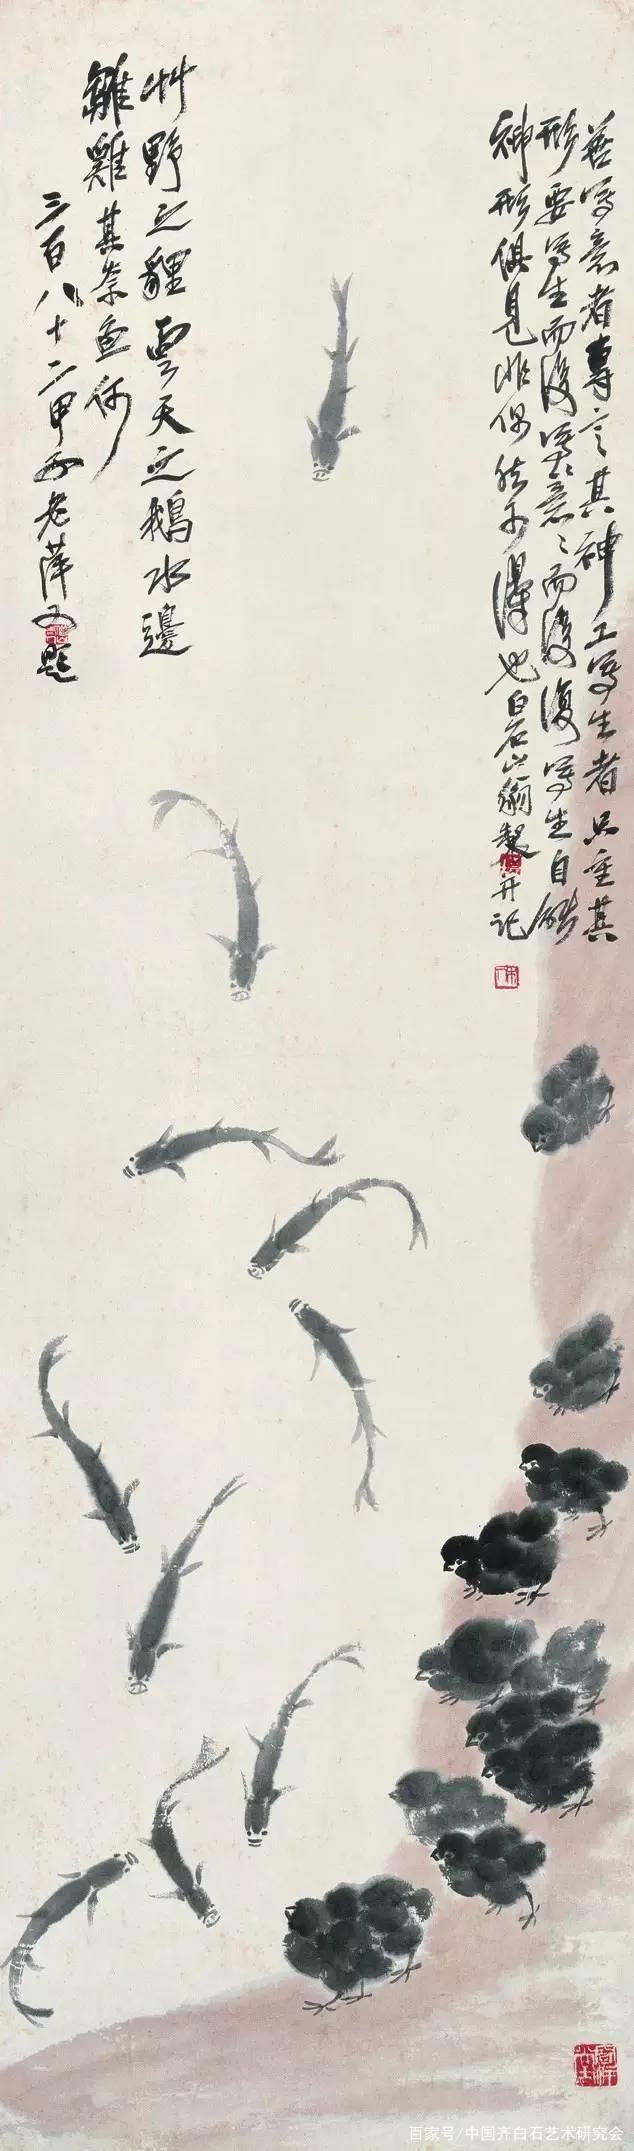 善寫意者專言其神工寫生者只重其
形要寫生而後寫意〻而後復寫生自能
神形俱見非偶然可得也白石山翁製并記
艸野之貍雲天之鵝水邊
雛雞其奈魚何
三百八十二甲子老萍又題
百家号/中国齐白石艺术研究会